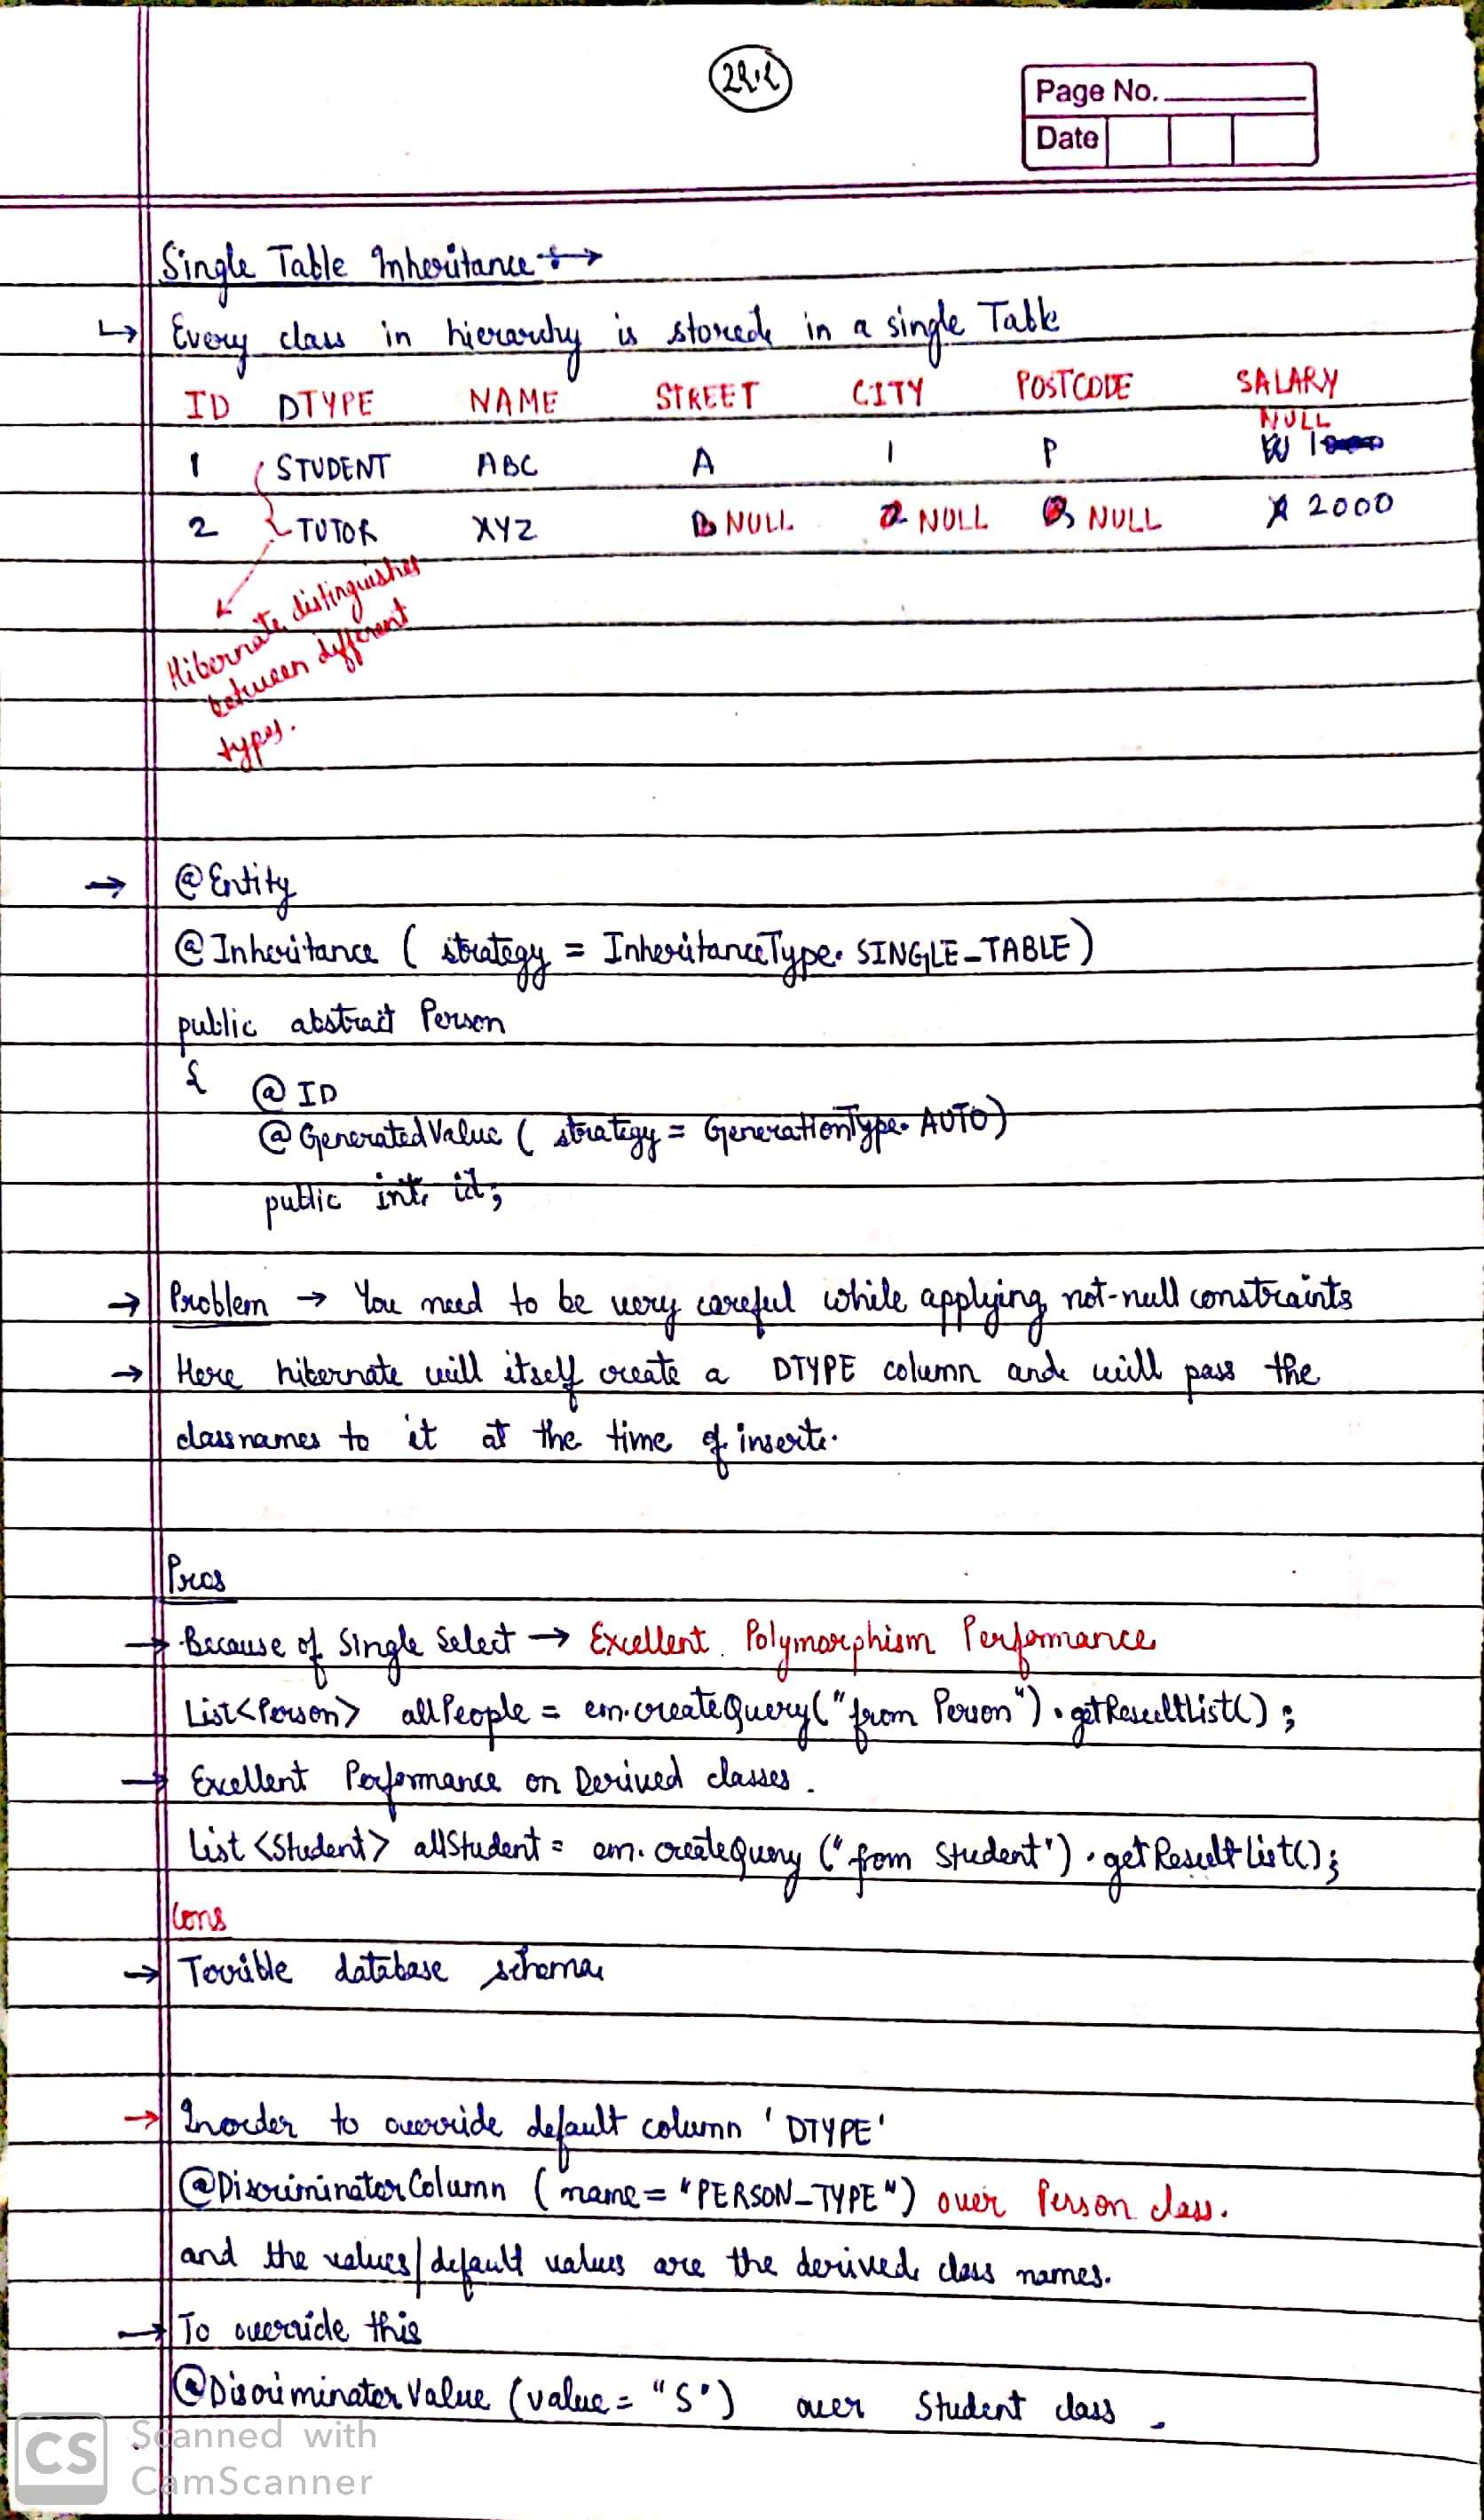 Page No.
Date
Single Table Inheritance :→
↳ Every class in hierarchy is stored in a single Table
ID DTYPE NAME STREET CITY POSTCODE SALARY
NULL
1 STUDENT ABC A 1 P
2 TUTOR XYZ NULL NULL NULL 2000
Hibernate distinguishes
between different
types.
→ @Entity
@Inheritance ( strategy = InheritanceType. SINGLE_TABLE )
public abstract Person
{ @ID
@GeneratedValue ( strategy = GenerationType. AUTO)
public int id;
→ Problem → You need to be very careful while applying not-null constraints
→ Here hibernate will itself create a DTYPE column and will pass the
classnames to it at the time of insert.
Pros
→ Because of Single Select → Excellent Polymorphism Performance
List<Person> allPeople = em.createQuery("from Person").getResultList();
→ Excellent Performance on Derived classes.
List <Student> allStudent = em.createQuery ("from Student").getResultList();
Cons
→ Terrible database schema
→ Inorder to override default column 'DTYPE'
@DiscriminatorColumn (name = "PERSON_TYPE") over Person class.
and the values/default values are the derived class names.
→ To override this
@DiscriminatorValue (value = "S") over Student class.
CS Scanned with
CamScanner